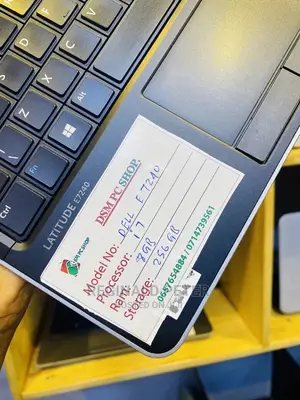 Alt
Fn
Ctrl
LATITUDE E7240
DSM PC SHOP.
DSM PCSHOP
Model No: DELL E7240
Processor: i7
Ram: 8GB
Storage: 256GB
0687654884 / 0714739561